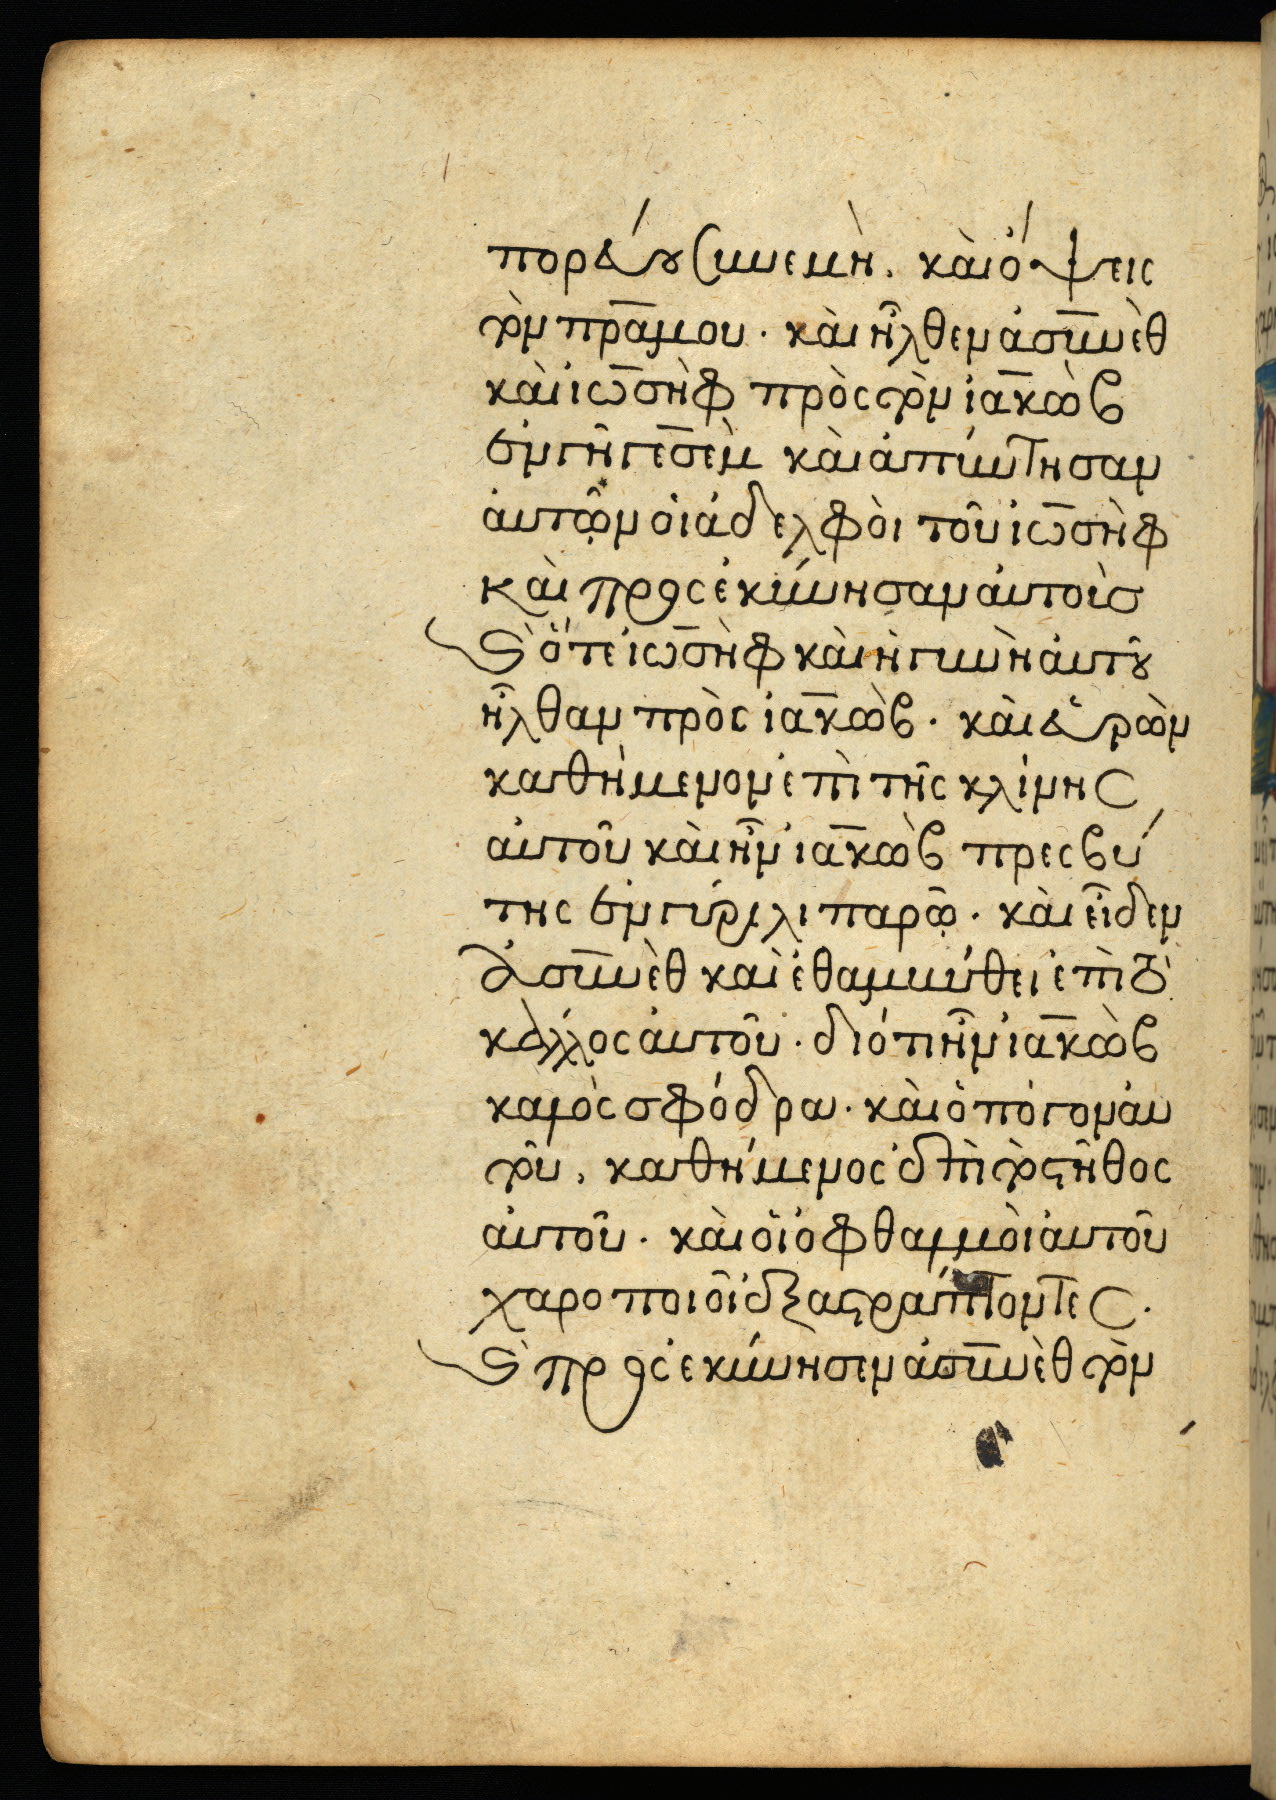 πορεύου γυνὲ μὴ. καὶ ὄψεις
τὸν πρ̅αν μου. καὶ ἦλθεν ἀσυ̅νὲθ
καὶ ἰω̅σὴφ πρὸς τὸν ἰα̅κὼβ
ἐν γῆ γε̅σὲμ καὶ ἀπύντησαν
ἀυτῶν οἱ ἀδελφὸι τοῦ ἰω̅σὴφ
καὶ προσἐκύνησαν ἀυτοὶσ
κ(αὶ) ὅτε ἰω̅σὴφ καὶ ἡ γυνὴ ἀυτοῦ
ἦλθαν πρὸς ἰα̅κὼβ. καὶ εὗρὼν
καθήμενον ἐπὶ τῆς κλίνης
ἀυτοῦ καὶ ἦν ἰα̅κὼβ πρεσβύ
της ἐν γύρᾳ λιπαρῶ. καὶ εἶδεν
ἀσυ̅νὲθ καὶ ἐθαμύθει ἐπὶ τὸ
κάλλος ἀυτοῦ. διότι ἦν ἰα̅κὼβ
καλὸς σφόδρα. καὶ ὁ πόγον ἀυ
τοῦ, καθήμενος ἐπὶ τὸ στῆθος
ἀυτοῦ. καὶ οἱ ὀφθαλμὸι ἀυτοῦ
χαροποιοῖ ἐξαστράπτοντες.
κ(αὶ) προσἐκύνησεν ἀσυ̅νὲθ τὸν